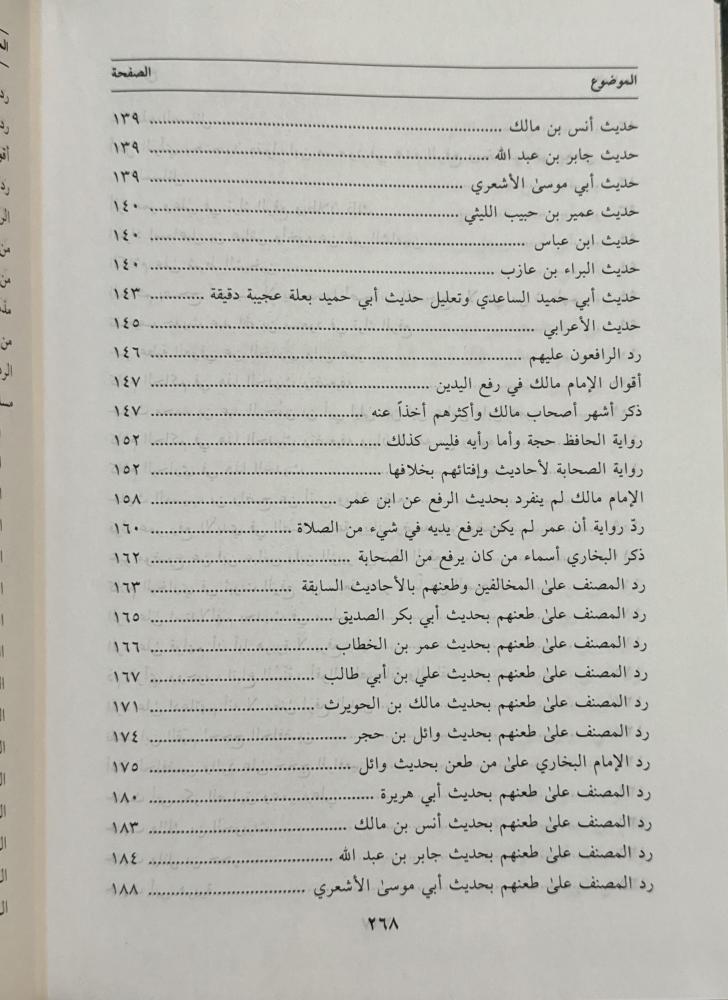 الموضوع الصفحة
حديث أنس بن مالك ١٣٩
حديث جابر بن عبد الله ١٣٩
حديث أبي موسىٰ الأشعري ١٣٩
حديث عمير بن حبيب الليثي ١٤٠
حديث ابن عباس ١٤٠
حديث البراء بن عازب ١٤٠
حديث أبي حميد الساعدي وتعليل حديث أبي حميد بعلة عجيبة دقيقة ١٤٣
حديث الأعرابي ١٤٥
رد الرافعون عليهم ١٤٦
أقوال الإمام مالك في رفع اليدين ١٤٧
ذكر أشهر أصحاب مالك وأكثرهم أخذاً عنه ١٤٧
رواية الحافظ حجة وأما رأيه فليس كذلك ١٥٢
رواية الصحابة لأحاديث وإفتائهم بخلافها ١٥٢
الإمام مالك لم ينفرد بحديث الرفع عن ابن عمر ١٥٨
ردّ رواية أن عمر لم يكن يرفع يديه في شيء من الصلاة ١٦٠
ذكر البخاري أسماء من كان يرفع من الصحابة ١٦٢
رد المصنف علىٰ المخالفين وطعنهم بالأحاديث السابقة ١٦٣
رد المصنف علىٰ طعنهم بحديث أبي بكر الصديق ١٦٥
رد المصنف علىٰ طعنهم بحديث عمر بن الخطاب ١٦٦
رد المصنف علىٰ طعنهم بحديث علي بن أبي طالب ١٦٧
رد المصنف علىٰ طعنهم بحديث مالك بن الحويرث ١٧١
رد المصنف علىٰ طعنهم بحديث وائل بن حجر ١٧٤
رد الإمام البخاري علىٰ من طعن بحديث وائل ١٧٥
رد المصنف علىٰ طعنهم بحديث أبي هريرة ١٨٠
رد المصنف علىٰ طعنهم بحديث أنس بن مالك ١٨٣
رد المصنف علىٰ طعنهم بحديث جابر بن عبد الله ١٨٤
رد المصنف علىٰ طعنهم بحديث أبي موسىٰ الأشعري ١٨٨
٢٦٨